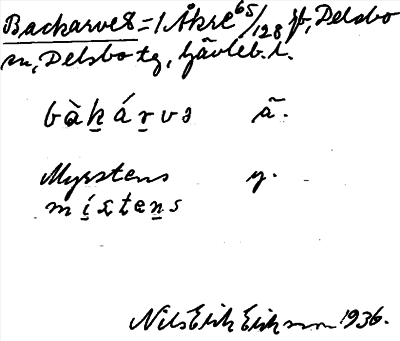 Backarves = 1 Åkre 65/128 sf, Delsbo
sn, Delsbo tg, Gävleb. l.
bàk̲ár̲vs ä.
Myrstens y.
mi̲stɛn̲s
Nils Erik Eriksson 1936.